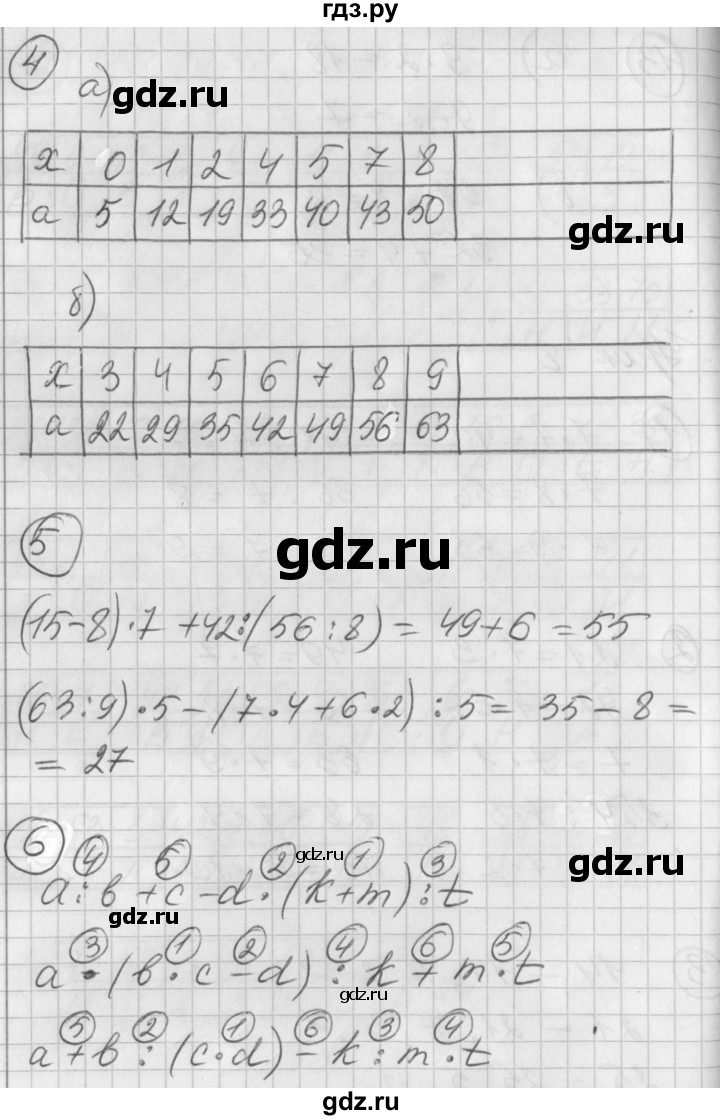 гдз.ру
4
а)
gdz.ru
х 0 1 2 4 5 7 8
а 5 12 19 33 40 43 50
gdz.ru
б)
х 3 4 5 6 7 8 9
а 22 29 35 42 49 56 63
5
gdz.ru
(15-8)·7 +42:(56:8) = 49+6 =55
(63:9)·5-(7·4+6·2):5= 35-8=
= 27
6
4 5 2 1 3
gdz.ru
a:b+c-d·(k+m):t
gdz.ru
gdz.ru
3 1 2 4 6 5
a·(b·c-d):k+m·t
gdz.ru
5 2 1 6 3 4
a+b:(c·d)-k:m·t
гдз.ру